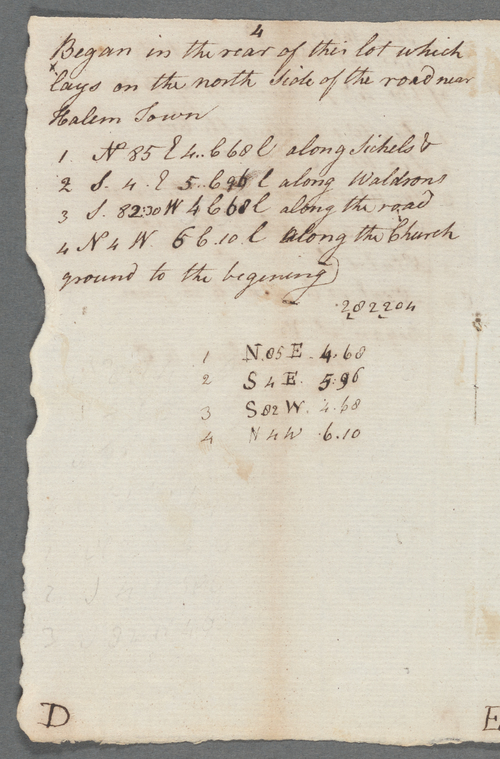 4
Began in the rear of this lot which
x
lays on the north side of the road near
Halem Town
1 N 85 E 4..C 68 l along Sickels &
2 S. 4. E 5..C 96 l along Waldrons
3 S. 82:30 W 4 C 68 l along the road
4 N 4 W 6 C.10 l along the Church
ground to the begening
282204
1 N.85 E. 4.68
2 S 4 E. 5.96
3 S 82 W. 4.68
4 N 4 W 6.10
2 S 4
3 S 82
D
E